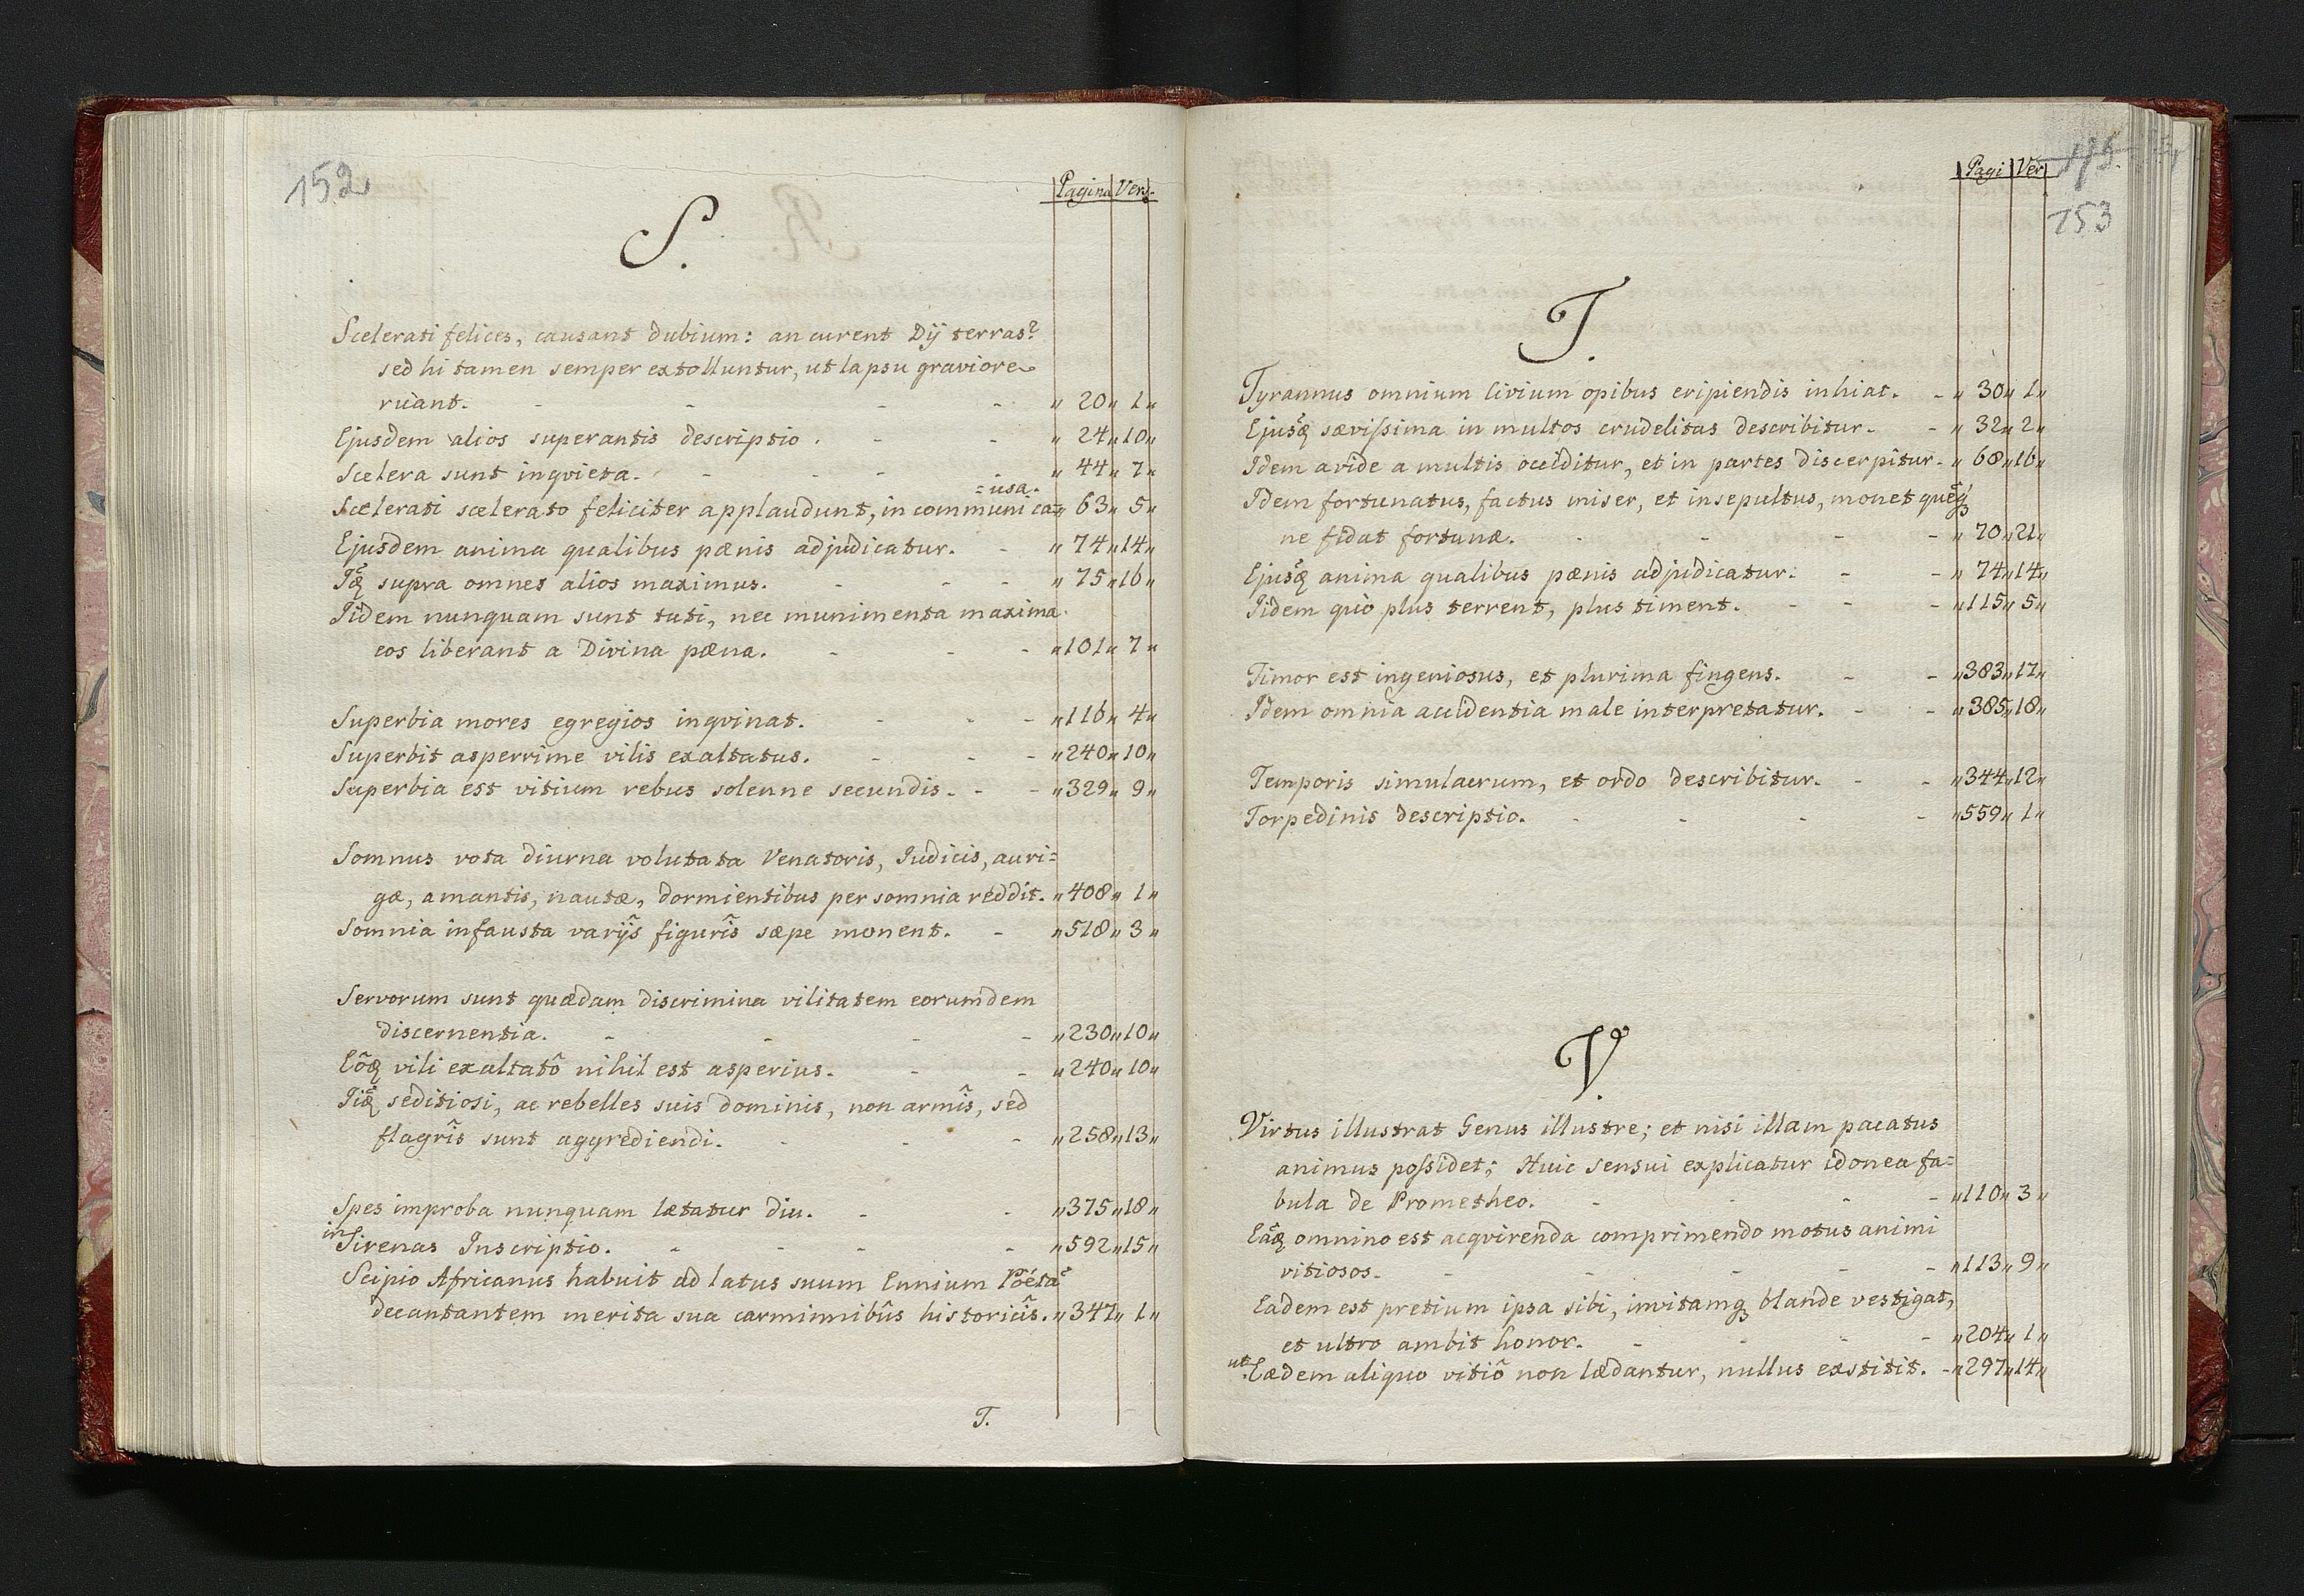 152
Pagina Vers.
S.
Scelerati felices, causant dubium: an curent Dij terras?
sed hi tamen semper extolluntur, ut lapsu graviore
ruant. - - - - „ 20 „ 1 „
Ejusdem alios superantis descriptio. - - „ 24 „ 10 „
Scelera sunt inqvieta. - - - - „ 44 „ 7 „
=usa.
Scelerati scelerato feliciter applaudunt, in communi ca= „ 63 „ 5 „
Ejusdem anima qualibus pænis adjudicatur. - „ 74 „ 14 „
supra omnes alios maximus. - - - „ 75 „ 16 „
Iidem nunquam sunt tuti, nec munimenta maxima
eos liberant a Divina pæna. - - - „ 101 „ 7 „
Superbia mores egregios inqvinat. - - - „ 116 „ 4 „
Superbit asperrime vilis exaltatus. - - - „ 240 „ 10 „
Superbia est vitium rebus solenne secundis. - - „ 329 „ 9 „
Somnus vota diurna volutata Venatoris, Iudicis, auri=
gæ, amantis, nautæ, dormientibus per somnia reddit. „ 408 „ 1 „
Somnia infausta varijs figurîs sæpe monent. - „ 518 „ 3 „
Servorum sunt quædam discrimina vilitatem eorumdem
discernentia. - - - - „ 230 „ 10 „
vili exaltatô nihil est asperius. - - „ 240 „ 10 „
seditiosi, ac rebelles suis dominis, non armîs, sed
flagrîs sunt aggrediendi. - - - „ 258 „ 13 „
Spes improba nunquam lætatur diu. - - „ 375 „ 18 „
in Sirenas Inscriptio. - - - - „ 592 „ 15 „
Scipio Africanus habuit ad latus suum Ennium Poéta
decantantem merita sua carminnibûs historicîs. „ 347 „ 1 „
T.
Pagi Ver
153
T.
Tyrannus omnium Civium opibus eripiendis inhiat. - „ 30 „ 1 „
Ejusq̃ sævissima in multos crudelitas describitur. - „ 32 „ 2 „
Idem avide a multis occiditur, et in partes discerpitur. „ 68 „ 16 „
Idem fortunatus, factus miser, et insepultus, monet quẽq
ne fidat fortunæ. - - - - „ 70 „ 21 „
Ejusq̃ anima qualibus pænis adjudicatur. - - „ 74 „ 14 „
Iidem quò plus terrent, plus timent. - - - „ 115 „ 5 „
Timor est ingeniosus, et plurima fingens. - - „ 383 „ 17 „
Idem omnia accidentia male interpretatur. - - „ 385 „ 18 „
Temporis simulacrum, et ordo describitur. - - „ 344 „ 12 „
Torpedinis descriptio. - - - - „ 559 „ 1 „
V.
Virtus illustrat Genus illustre; et nisi illam pacatus
animus possidet; Huic sensui explicatur idonea fa=
bula de Prometheo. - - - - „ 110 „ 3 „
Eãq omnino est acqvirenda comprimendo motus animi
vitiosos. - - - - - „ 113 „ 9 „
Eadem est pretium ipsa sibi, invitamq blande vestigat,
et ultro ambit honor. - - - - „ 204 „ 1 „
ut Eædem aliquo vitiô non lædantur, nullus exstitit. - „ 297 „ 14 „